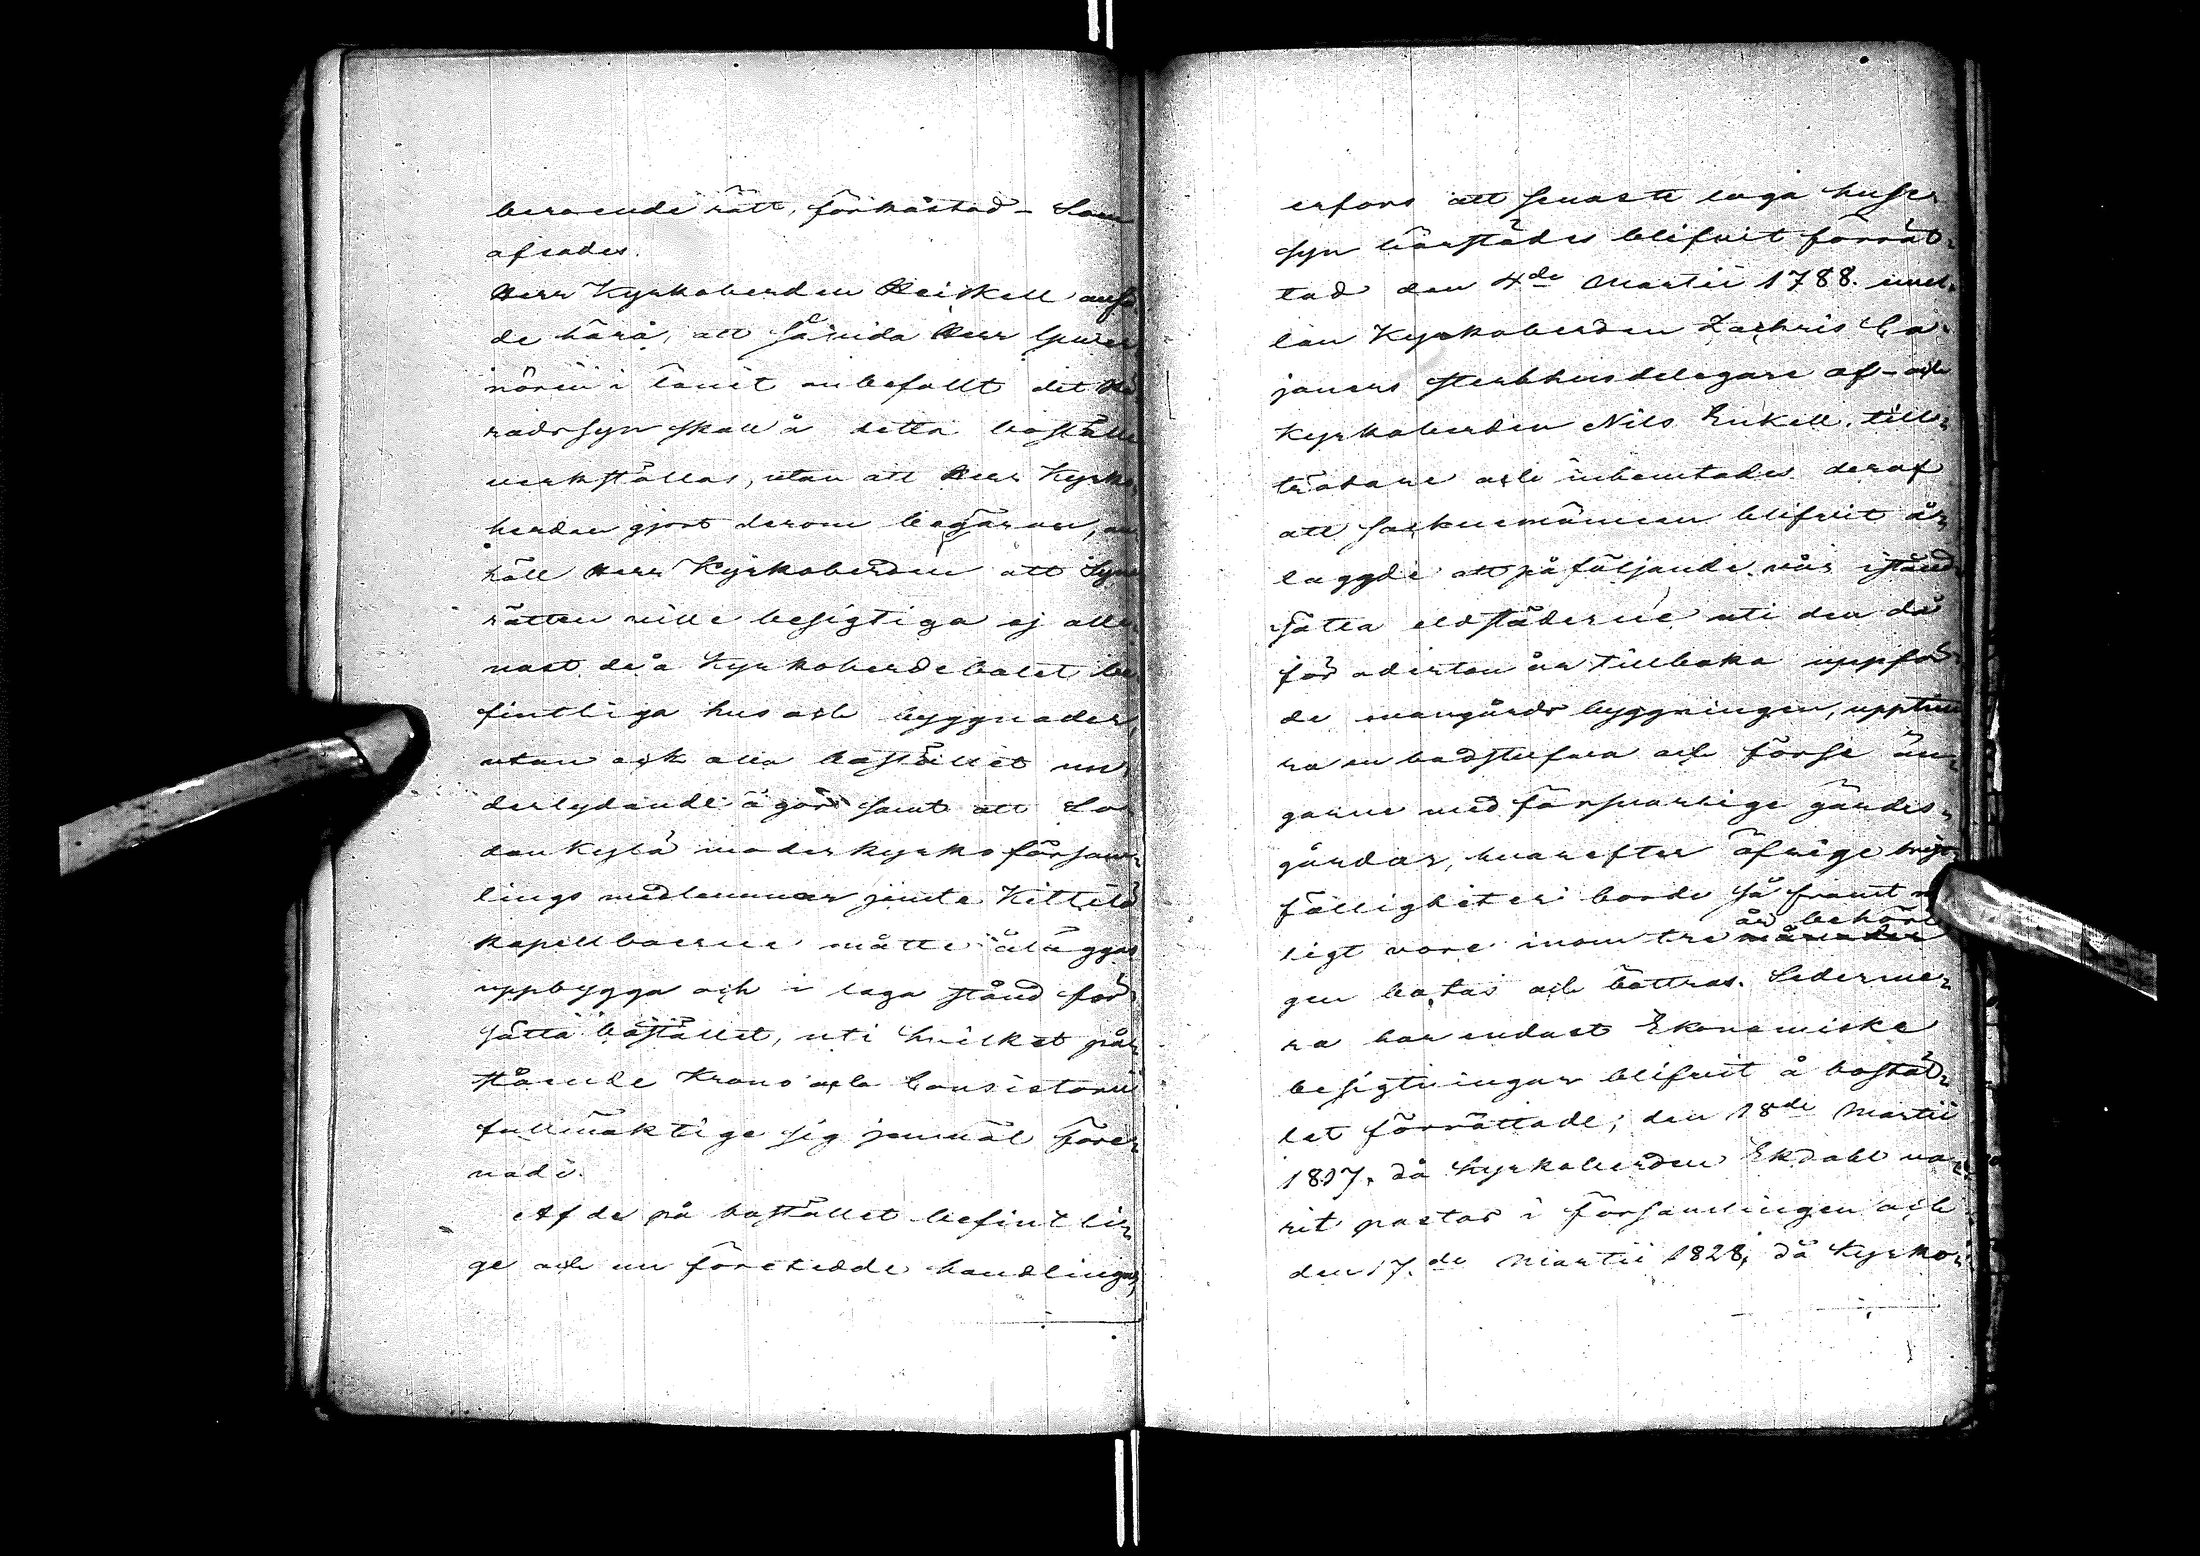 beroende rätt, förkastad – Som
afsades.
Herr Kyrkoherden Heiskell anfö
de härå, att såvida Herr Guver
nören i länet anbefallt det Hä
radssyn skall å detta boställe
verkställas, utan att Herr Kyrko
herden gjort derom begäran, an
höll Herr Kyrkoherden att Syne
rätten ville besigtiga ej alle
nast de å Kyrkoherdebolet be
fintliga hus och byggnader,
utan ock alla bostället un
derlydande ägor samt att So
dankylä moderkyrkoförsam
lings medlemmar jemte Kittilä
kapellboerne måtte åläggas
uppbygga och i laga stånd för
sätta bostället, uti hvilket på
stående Krono och Consistorii
fullmäktige sig jemväl före
nade.
Af de på bostället befintli
ge och nu företedde handlingar
erfors att senaste laga huse
syn härstädes blifvit förrät
tad den 4de Martii 1788. emel
lan Kyrkoherden Zachris Ca
janers sterbhusdelegare af- och
Kyrkoherden Nils Enkell till
trädare och inhemtades deraf
att socknemännen blifvit å
laggde att påföljande vår istånd
sätta eldstäderne uti den då
för aderton år tillbaka uppför
de mangårds byggningen, upptim
ra en badstufva och förse än
garne med försvarlige gärdes
gårdar, hvarefter öfrige bryst
fälligheter borde så framt
ligt vore inom tre månader år behöri
gen botas och bättras. Sederme
ra har endast Ekonomiske
besigtningar blifvit å bostäl
let förrättade; den 18de Martii
1807. då Kyrkoherden Ekdahl va
rit pastor i församlingen och
den 17.de Martii 1828, då Kyrko